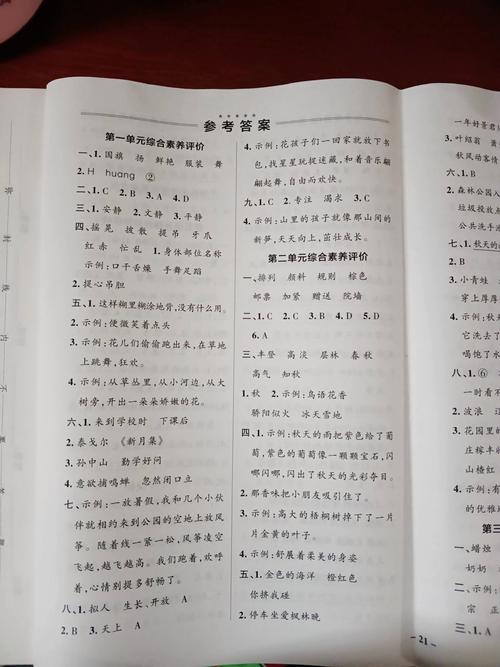 参考答案
第一单元综合素养评价
一、1.国旗 扬 鲜艳 服装 舞
2. H huang ②
二、1. C 2. B 3. A 4. D
三、1.安静 2.文静 3.平静
四、1.摇晃 披散 提吊 牙爪
红赤 忙乱 3.1.身体部位名称
示例:口干舌燥 手舞足蹈
2.提心吊胆
五、1.这样糊里糊涂地背,没有什么用。
2.示例:使微笑着点头
3.示例:花儿们偷偷跑出来,在草地
上跳舞,狂欢。
4.示例:从草丛里,从小河边,从大
树旁,开出一朵朵娇嫩的花。
六、1.来到学校时 下课后
2.泰戈尔 《新月集》
3.孙中山 勤学好问
4.意欲捕鸣蝉 忽然闭口立
七、示例:一放暑假,我和几个小伙
伴就相约来到公园的空地上放风
筝。随着线一紧一松,风筝凌空
飞起,越飞越高。我们跑着,欢呼
着,心情别提多舒畅了。
八、1.拟人 生长、开放 A
2. B 3.天上 A
4.示例:花孩子们一回家就放下书
包,找星星玩捉迷藏,和着音乐翩
翩起舞,自由而欢快。
九、1. C 2.专注 渴求 3. C
4.示例:山里的孩子就像那山间的
新笋,天天向上,茁壮成长。
第二单元综合素养评价
一、排列 颜料 规则 棕色
邮票 加紧 赠送 院墙
二、1. C 2. C 3. B 4. D 5. D
6. A
三、1.丰登 高淡 层林 春秋
高气 知秋
2.1.秋 2.示例:鸟语花香
骄阳似火 冰天雪地
四、1.示例:秋天的雨把紫色给了葡
萄,紫色的葡萄像一颗颗宝石,闪
呀闪呀,闪出了秋天的光彩夺目。
2.那香味把小朋友吸引住了。
3.示例:高大的梧桐树掉下了一片
片金黄的叶子。
4.示例:舒展着柔美的身姿
五、1.金色的海洋 橙红色
你挤我碰
2.停车坐爱枫林晚
一年好景君
3.叶绍翁 萧
秋风动客情
六、1. B
2.森林公园
垃圾投放
公共洗手
七、1.天气
2. B
3.小青蛙
穿上厚厚
4.示例
喝了水
八、1.⑥
一时看
2.波浪 辽
3.花园里
庄稼丰
4.示例
的优雅
第三
一、蜡烛
奶奶
二、1.示例
宗 正
三、1. A
21